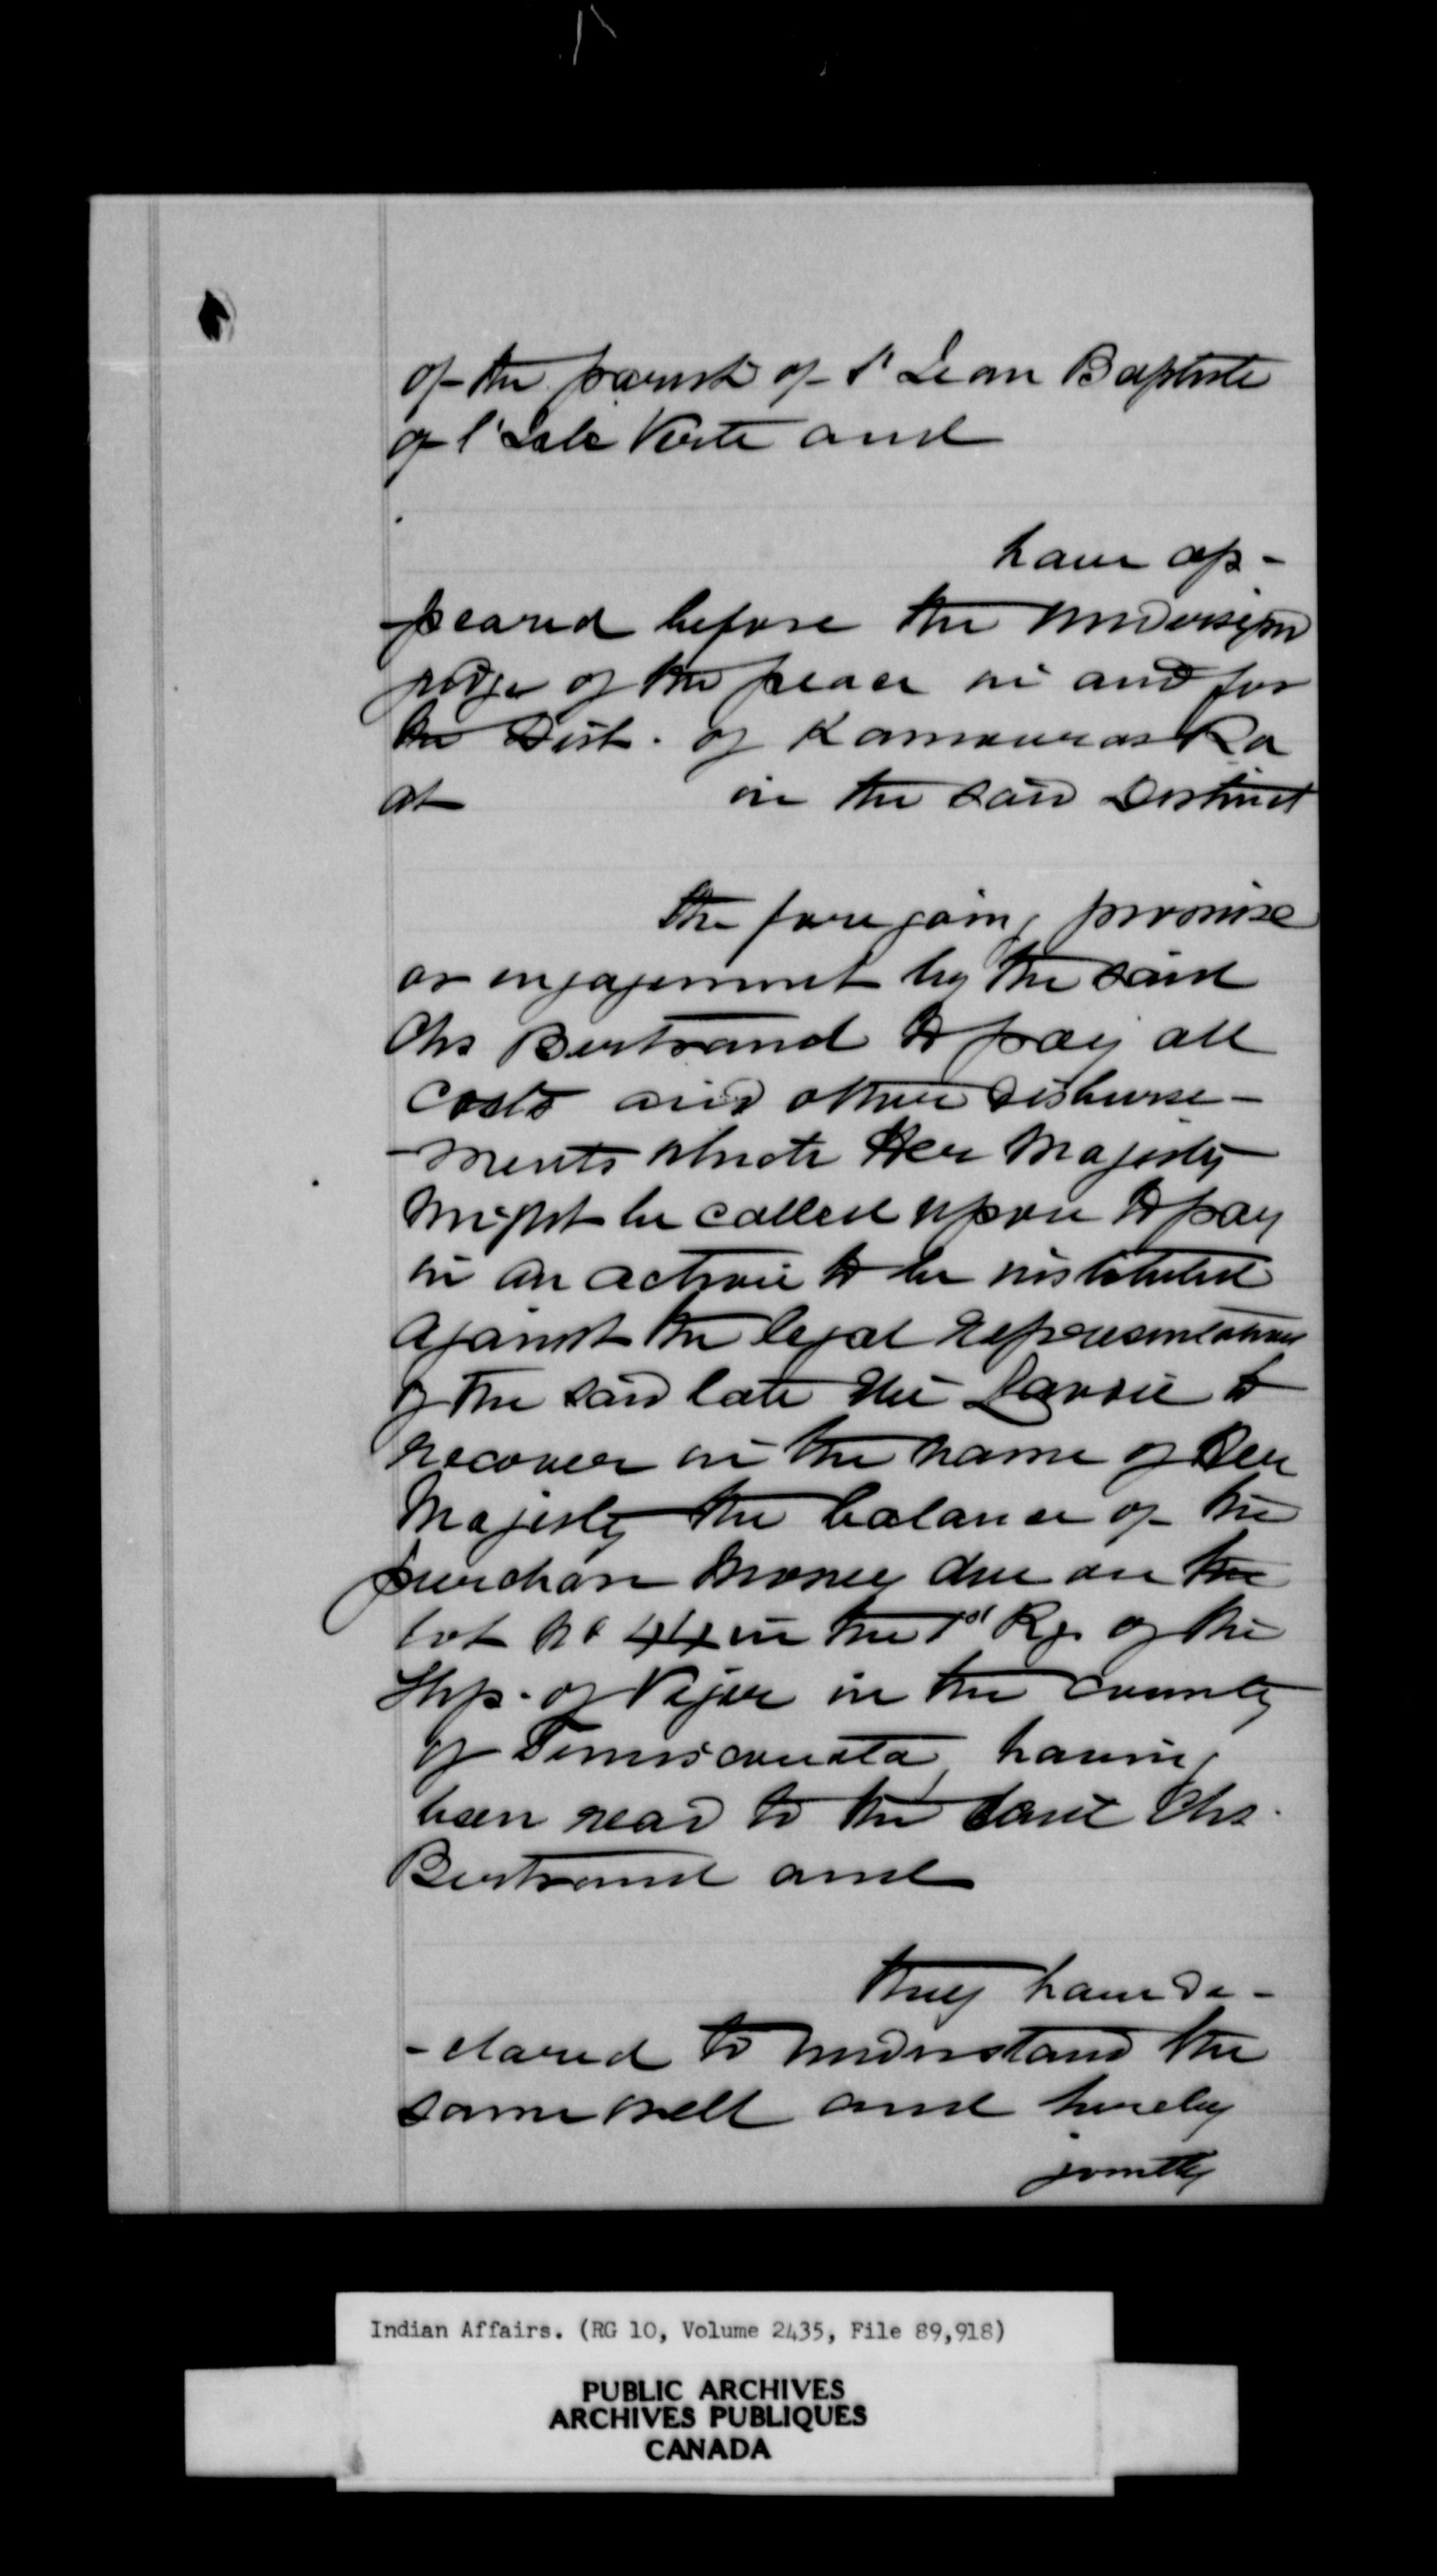 of the parish of St Jean Baptiste
of l'Isle Verte and
have ap-
-peared before the undersigned
judge of the peace in and for
the Dist. of Kamouraska
at in the said District
the foregoing promise
or engagement by the said
Chs Bertrand to pay all
costs and other disburse-
-ments which Her Majesty
might be called upon to pay
in an action to be instituted
against the legal representatives
of the said late Lavoie to
recover in the name of Her
Majesty the balance of the
purchase money due on the
lot No 44 in the 1st Rg. of the
Thp. of Viger in the county
of Temiscouata, having
been read to the said Chs.
Bertrand and
they have de-
-clared to understand the
same well and hereby
jointly
Indian Affairs. (RG 10, Volume 2435, File 89,918)
PUBLIC ARCHIVES
ARCHIVES PUBLIQUES
CANADA